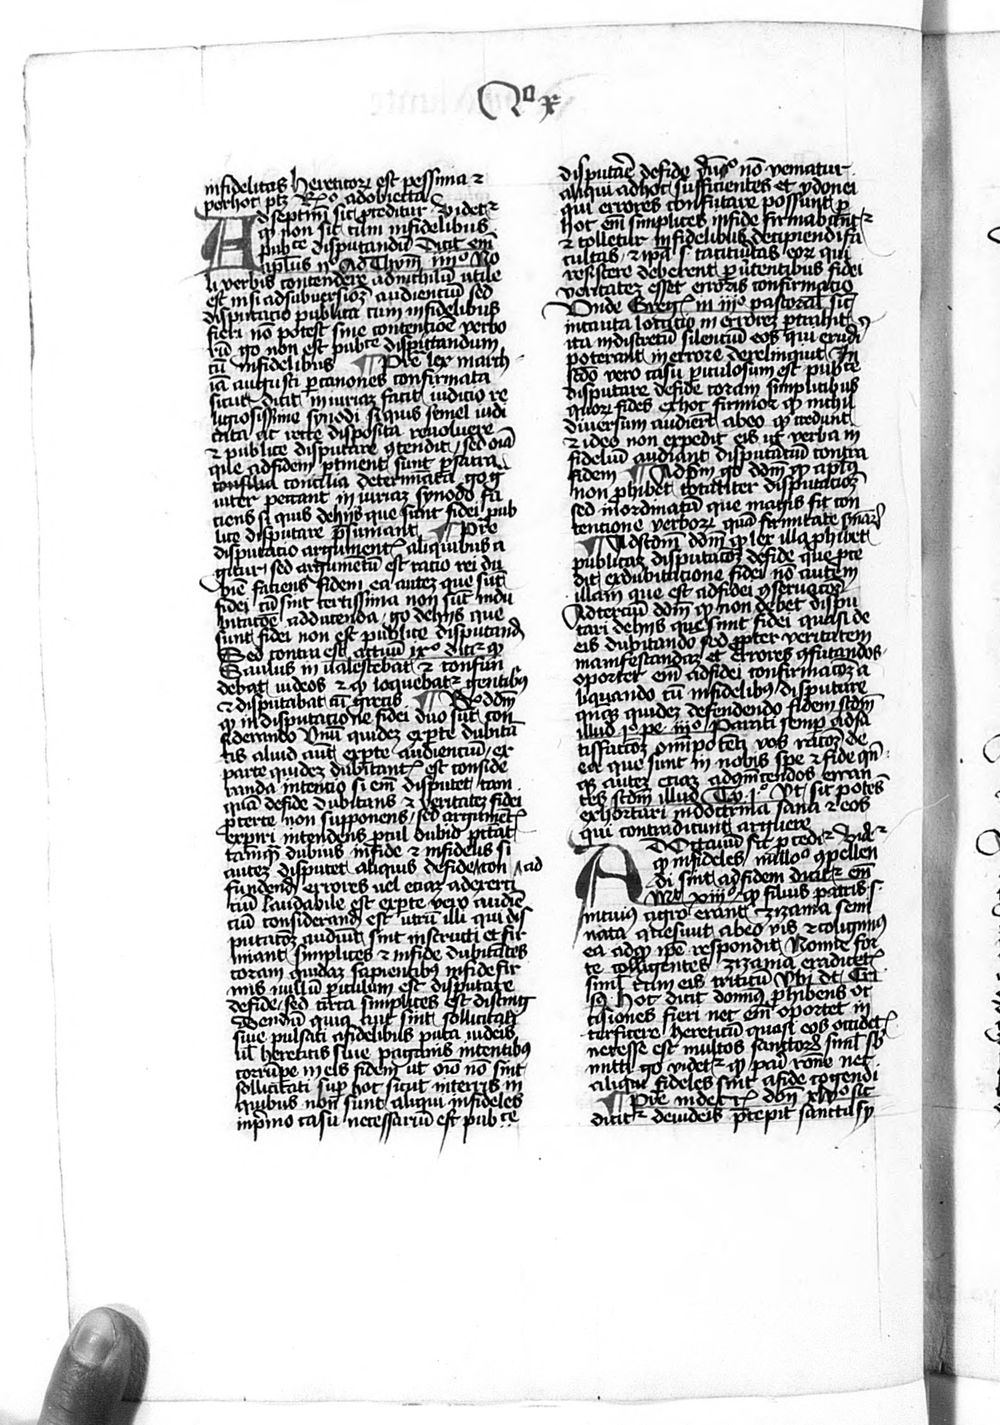 Qo x
infidelitas hereticorum est pessima et
per hoc patet Ro ad obiecta
Ad septimum sic proceditur Videtur
quod non sit cum infidelibus
publice disputandum Dicit enim
apostolus iio Ad Thym iiiio No
li verbis contendere ad nichilum utile
est nisi ad subversionem audientium sed
disputatio publica cum infidelibus
fieri non potest sine contentione verbo
rum ergo non est publice disputandum
cum infidelibus ¶ Pre lex march
ia augusti per canones confirmata
sicut dicit iniuriam facit iudicio re
ligiosissime synodi si quis semel iudi
cata ac recte disposita revoluere
et publice disputare contendit sed omnia
que ad fidem pertinent sunt per sacra
consilia concilia determinata ergo gra
viter peccant iniuriam synodo fa
ciens si quis de hiis que sunt fidei pub
lice disputare presumant ¶ Pre
disputatio argumentis aliquibus a
gitur sed argumentum est ratio rei du
bie faciens fidem ea autem que sunt
fidei cum sint certissima non sunt in du
bitatione adducenda ergo de hiis que
sunt fidei non est publice disputandum
Sed contra est actuum ixo dicitur quod
Saulus invalescebat et confun
debat iudeos et quod loquebatur gentibus
et disputabat cum grecis ¶ Ro ddm
quod in disputatione fidei duo sunt con
siderando Vnum quidem ex parte disputa
tis aliud autem ex parte audientium ex
parte quidem disputantis est conside
randa intentio si enim disputet tam
quam de fide dubitans et veritatem fidei
pro certo non supponens sed argumentis
experiri intendens procul dubio peccat
tamquam dubius in fide et infidelis si
autem disputet aliquis de fide ad con
fundendum errores vel etiam ad exerci
cium laudabile est ex parte vero audien
cium considerandum est utrum illi qui dis
putationem audiunt sint instructi et fir
mi aut simplices et in fide dubitantes
coram quidem sapientibus in fide fir
mis nullum periculum est disputare
de fide sed circa simplices est disting
uendum quia aut sunt sollicitati
sive pulsati ab infidelibus puta iudeis
vel hereticis sive paganis intentibus
corrumpere in els fidem ut omnino non sint
sollicitati super hoc sicut in terris in
quibus non sunt aliqui infideles
in primo casu necessarium est publice
disputare de fide dummodo non veniatur
aliqui ad hoc sufficientes et ydonei
qui errores confutare possunt per
hoc enim simplices in fide firmabuntur
et tolletur infidelibus decipiendi fa
cultas et ipsa taciturnitas eorum qui
resistere deberent pervertentibus fidei
veritatem esset erroris confirmatio
Vnde Greg in iio pastoral sicut
incauta locutio in errorem pertrahit
ita indiscretum silentium eos qui erudi
poterant in errore derelinquit In
secundo vero casu periculosum est publice
disputare de fide coram simplicibus
quorum fides ex hoc firmior quod nichil
diversum audierunt ab eo quod credunt
et ideo non expedit eis ut verba in
fidelium audiant disputantium contra
fidem ¶ Ad primum ergo ddm quod apostolus
non prohibet totaliter disputationem
sed inordinatam que magis fit con
tentione verborum quam firmitate sententiarum
¶ Ad secundum ddm quod lex illa prohibet
publicam disputationem de fide que proce
dit ex dubitatione fidei non autem
illam que est ad fidei conservationem
Ad tercium ddm quod non debet dispu
tari de hiis que sunt fidei quasi de
eis dubitando sed propter veritatem
manifestandam et errores confutandos
oportet enim ad fidei confirmationem a
liquando cum infidelibus disputare
quandoque quidem defendendo fidem secundum
illud io pe iiio Parati semper ad sa
tisfactionem omni poscenti vos rationem de
ea que sunt in vobis spe et fide quando
que autem etiam ad convincendos erran
tes secundum illud Ty io Vt sit potens
exhortari in doctrina sana et eos
qui contradicunt arguere
Ad Octavum sic proceditur Videtur
quod infideles nullo modo compellen
di sint ad fidem dicitur enim
Mat xiiio quod filius patris f
in cuius agro erant zizania semi
nata quesivit ab eo vis et coligimus
ea ad quod ipse respondit Non ne for
te colligentes zizania eradicetis
simul cum eis triticum Vbi dicit Cri
so hoc dicit dominus prohibens oc
cisiones fieri nec enim oportet in
terficere hereticum quasi eos occidetis
necesse est multos sanctorum simul sub
mitti ergo videtur quod pari ratione nec
aliqui fideles sint a fide cogendi
¶ Pre in decretis don xlvo sic
dicitur de iudeis precepit sancta sy